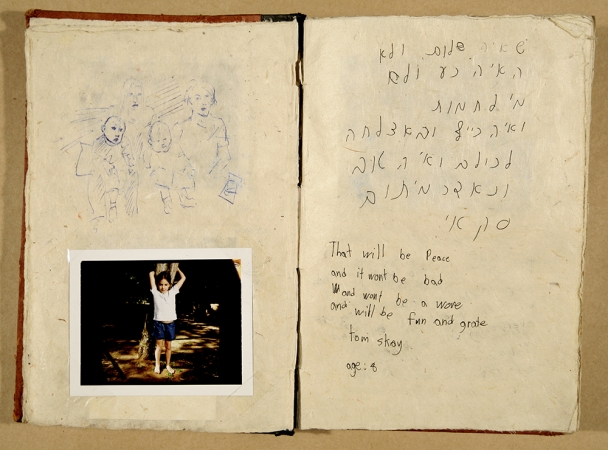 שאיה שלום ולא
האיה רע ולם
מי לחמות
ואיה כייף ובאצלחה
לכולם ואיה טוב
That will be Peace
and it wont be bad
and wont be a wore
and will be fun and grate
tom skay
age: 8